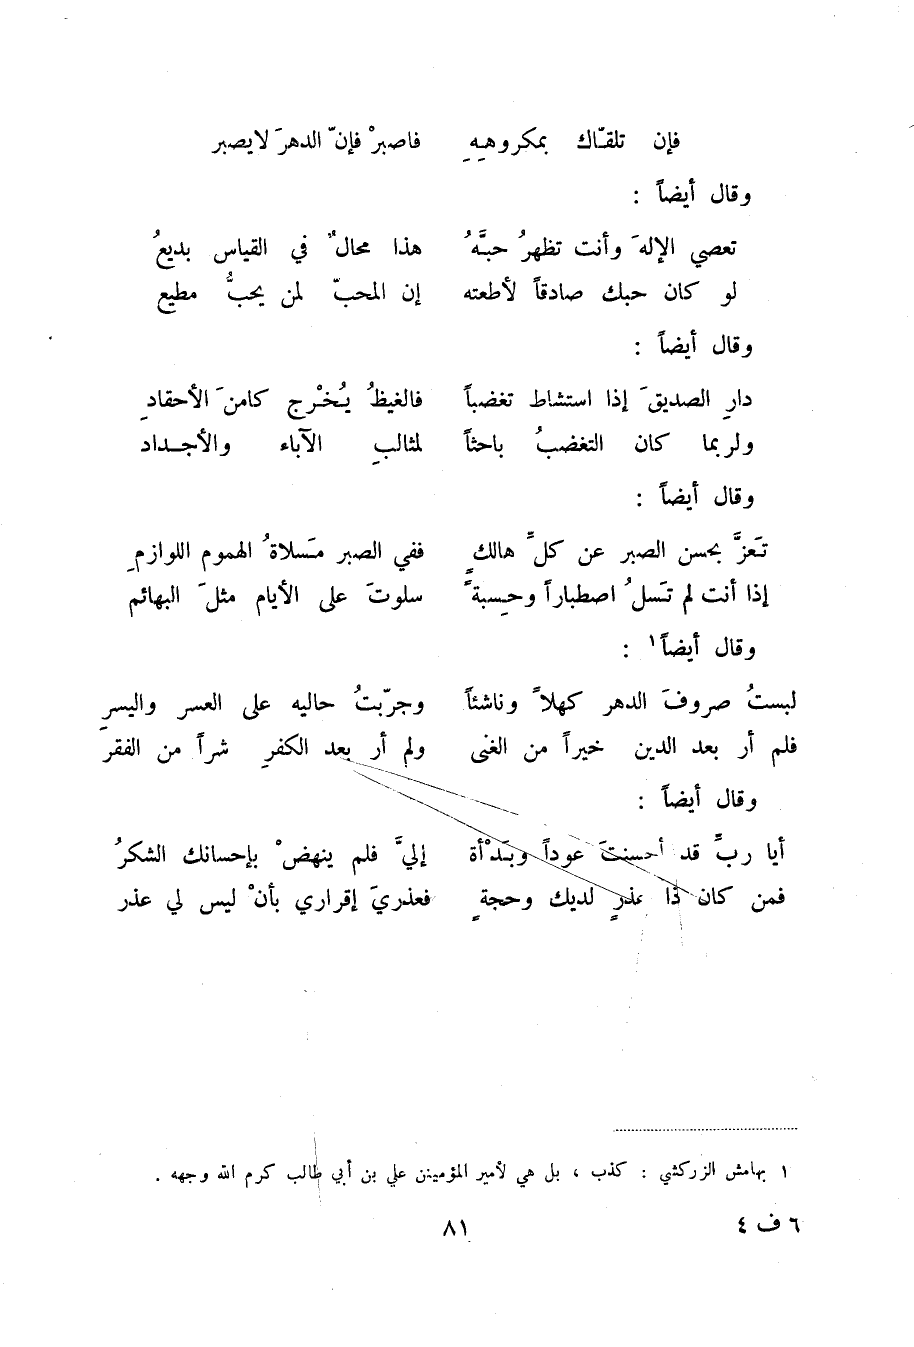 فإن تلقّاك بمكروهِهِ فاصبرْ فإنّ الدهرَ لا يصبر
وقال أيضاً :
تعصي الإلهَ وأنت تظهرُ حبَّهُ هذا محالٌ في القياس بديعُ
لو كان حبك صادقاً لأطعته إن المحبّ لمن يحبُّ مطيع
وقال أيضاً :
دارِ الصديقَ إذا استشاط تغضباً فالغيظُ يُخْرج كامنَ الأحقادِ
ولربما كان التغضبُ باحثاً لمثالبِ الآباء والأجداد
وقال أيضاً :
تَعزَّ بحسن الصبر عن كلِّ هالكٍ ففي الصبر مَسلاةُ الهموم اللوازمِ
إذا أنت لم تَسلُ اصطباراً وحِسبةً سلوتَ على الأيام مثلَ البهائم
وقال أيضاً١ :
لبستُ صروفَ الدهر كهلاً وناشئاً وجرّبتُ حاليه على العسر واليسرِ
فلم أر بعد الدين خيراً من الغنى ولم أر بعد الكفرِ شراً من الفقر
وقال أيضاً :
أيا ربِّ قد أحسنتَ عوداً وبَدْأة إليَّ فلم ينهضْ بإحسانك الشكرُ
فمن كان ذا عذرٍ لديك وحجةٍ فعذريَ إقراري بأنْ ليس لي عذر
١ بهامش الزركشي : كذب ، بل هي لأمير المؤمينن علي بن أبي طالب كرم الله وجهه .
٦ ف ٤
٨١